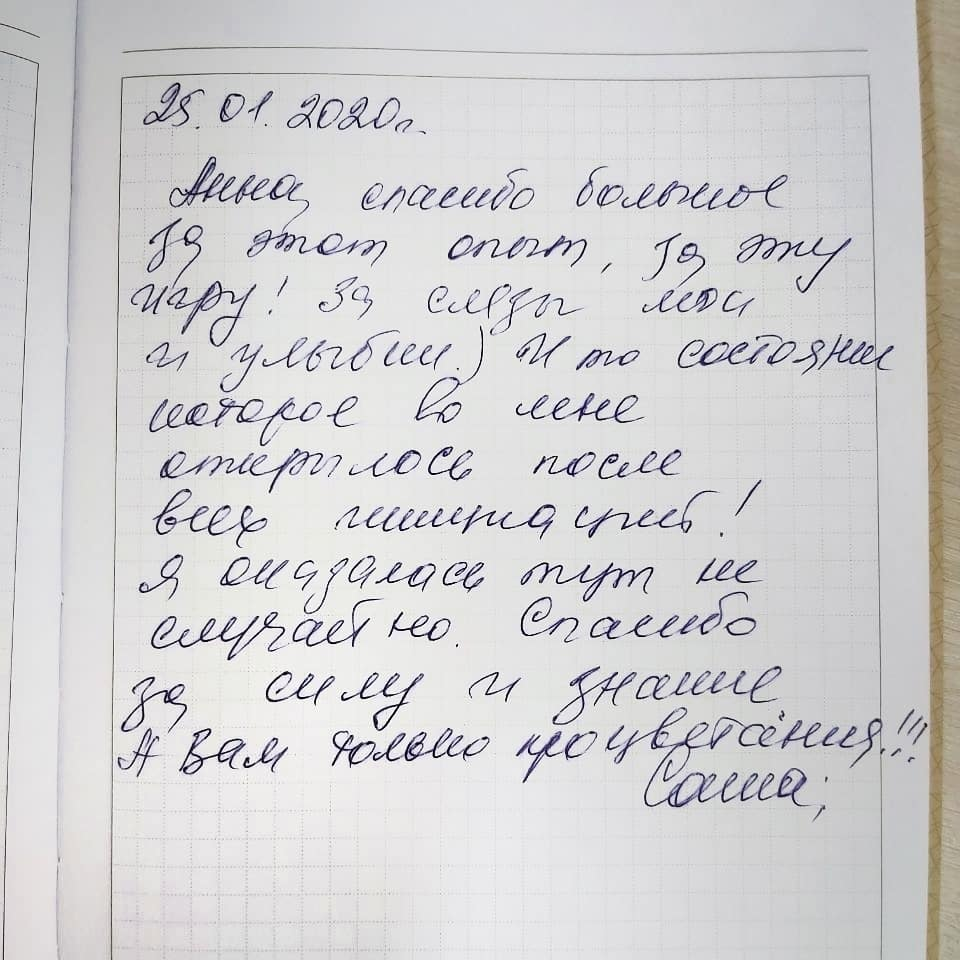 25.01.2020г.
Анна, спасибо большое
за этот опыт, за эту
игру! За слёзы мои
и улыбки.) И то состояни
которое во мне
открылось после
всех
Я оказалась тут не
случайно. Спасибо
за силу и знание
А Вам только процветания!!!
Саша;